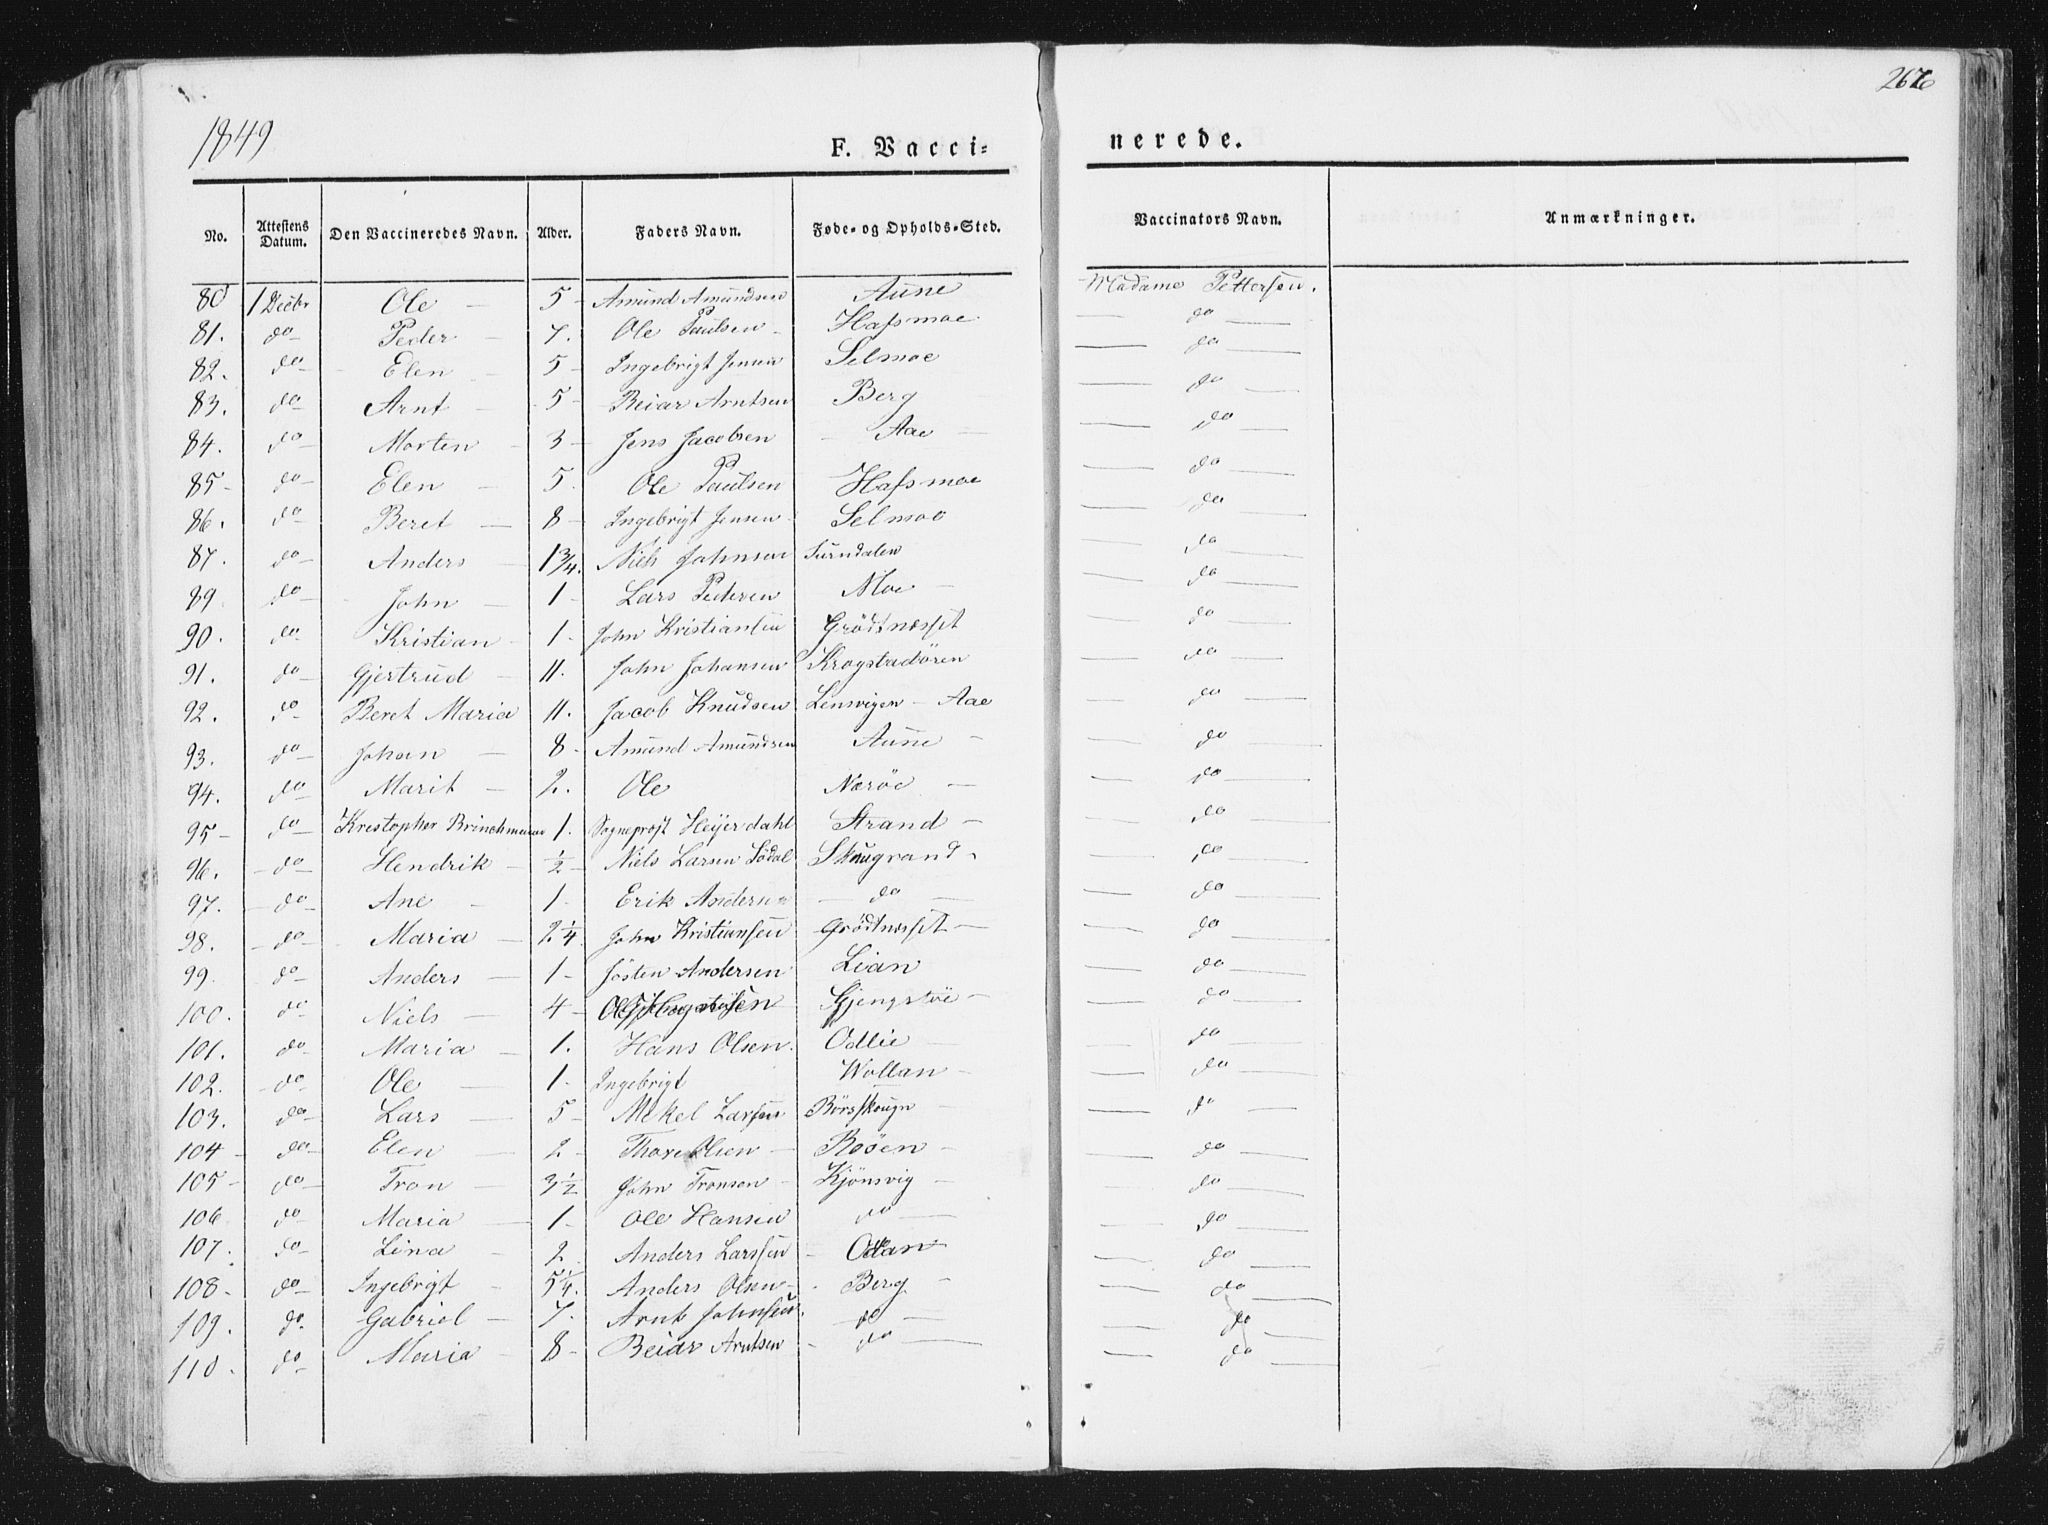 267
1849
F. Vaccinerede.
No. Attestens Datum. Den Vaccineredes Navn. Alder. Faders Navn. Føde- og Opholds-Sted. Vaccinators Navn. Anmærkninger.
80 1 Decbr Ole — 5 - Amund Amundsen Aune Madame Pettersen.
81. do Peder — 7. Ole Paulsen - Hafsmoe — do —
82. do Elen - 5 - Ingebrigt Jensen Selmoe — do —
83. do Arnt - 5 - Beiar Arntsen Berg — do —
84. do Morten - 3 - Jens Jacobsen - Aae — — do —
85 - do Elen — 5. Ole Paulsen Hafsmoe — do —
86. do Beret — 8 - Ingebrigt Jensen Selmoe — do —
87. do Anders - 1 3/4. Niels Johnsen Surndalen — do —
89 do John — 1 - Lars Pedersen Moe — — do —
90. do Kristian - 1. John Kristiansen Grödtnesset — do —
91. do Gjertrud - 11. John Johansen Krogstadören — do —
92. do Beret Maria 11. Jacob Knudsen Lensvigen - Aae — do —
93. do Johan — 8 - Amund Amundsen Aune - — do —
94. do Marit - 2. Ole Nærøe — — do —
95 - do Kristopher Brinchmann 1. Sogneprost Heyerdahl Strand - — do —
96. do Hendrik - 1/2 - Niels Larsen Södal Skaugrand - — do —
97. do Ane - 1 - Erik Andersen - do — — do —
98. do Maria — 2 1/4 John Kristiansen Grödtnesset - — do —
99 do Anders — 1 - Jösten Andersen Lian — do —
100. do Niels — 4 - Gjengstöe - — do —
101. do Maria — 1. Hans Olsen. Odlie — — do —
102. do Ole — 1 - Ingebrigt Wollan - — do —
103. do Lars — 5 - Mekel Larsen Börsskougn - — do —
104 - do Elen — 2 - Thore Olsen - Roöen - — do —
105 - do Tron — 3 1/2 John Tronson - Kjönsvig - — do —
106 do Maria — 1 - Ole Hansen do — — do —
107. do Lina - 2 Anders Larssen - — do —
108 - do Ingebrigt - 5 1/4. Anders Olsen - Berg - — do —
109. do Gabriel - 7. Arnt Johnsen. do — — do —
110. do Maria - 8 - Beiar Arntsen - do — — do —